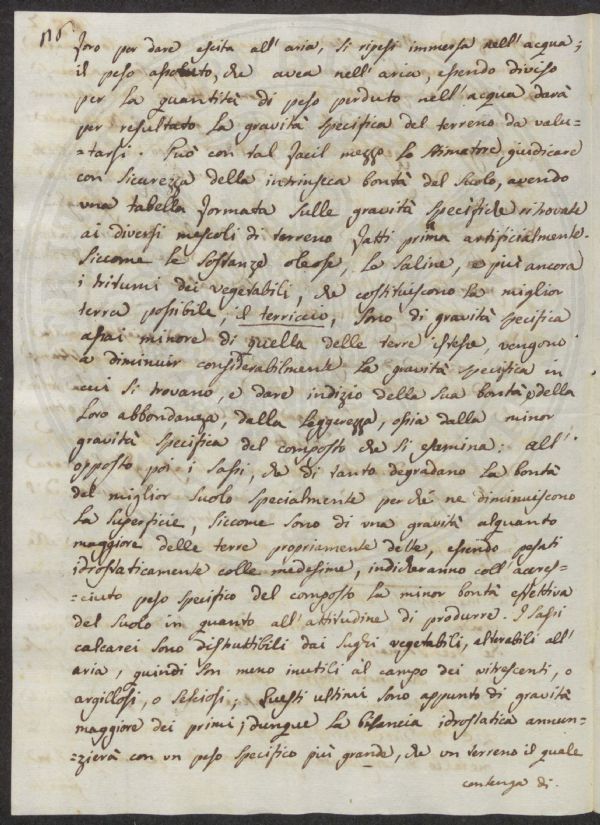 116
foro per dare escita all' aria, si ripesi immersa nell' acqua;
il peso assoluto, che avea nell' aria, essendo diviso
per la quantità di peso perduto nell' acqua darà
per resultato la gravità specifica del terreno da valu-
=tarsi. Può con tal facil mezzo lo stimatore giudicare
con sicurezza della intrinseca bontà del suolo, avendo
una tabella formata sulle gravità specifiche ritrovate
ai diversi mescoli di terreno fatti prima artificialmente.
Siccome le sostanze oleose, le saline, e più ancora
i tritumi dei vegetabili, che costituiscono la miglior
terra possibile, il terriccio, sono di gravità specifica
assai minore di quella delle terre istesse, vengono
a diminuir considerabilmente la gravità specifica in
cui si trovano, e dare indizio della sua bontà e della
loro abbondanza, dalla leggerezza, ossia dalla minor
gravità specifica del composto che si esamina: all'
opposto poi i sassi, che di tanto degradano la bontà
del miglior suolo specialmente perchè ne diminuiscono
la superficie, siccome sono di una gravità alquanto
maggiore delle terre propriamente dette, essendo pesati
idrostaticamente colle medesime, indicheranno coll' accres-
=ciuto peso specifico del composto la minor bontà effettiva
del suolo in quanto all' attitudine di produrre. I sassi
calcarei sono distruttibili dai sughi vegetabili, alterabili all'
aria, quindi son meno inutili al campo dei vitrescenti, o
argillosi, o selciosi; questi ultimi sono appunto di gravità
maggiore dei primi; dunque la bilancia idrostatica annun-
=zierà con un peso specifico più grande, che un terreno il quale
contenga di.